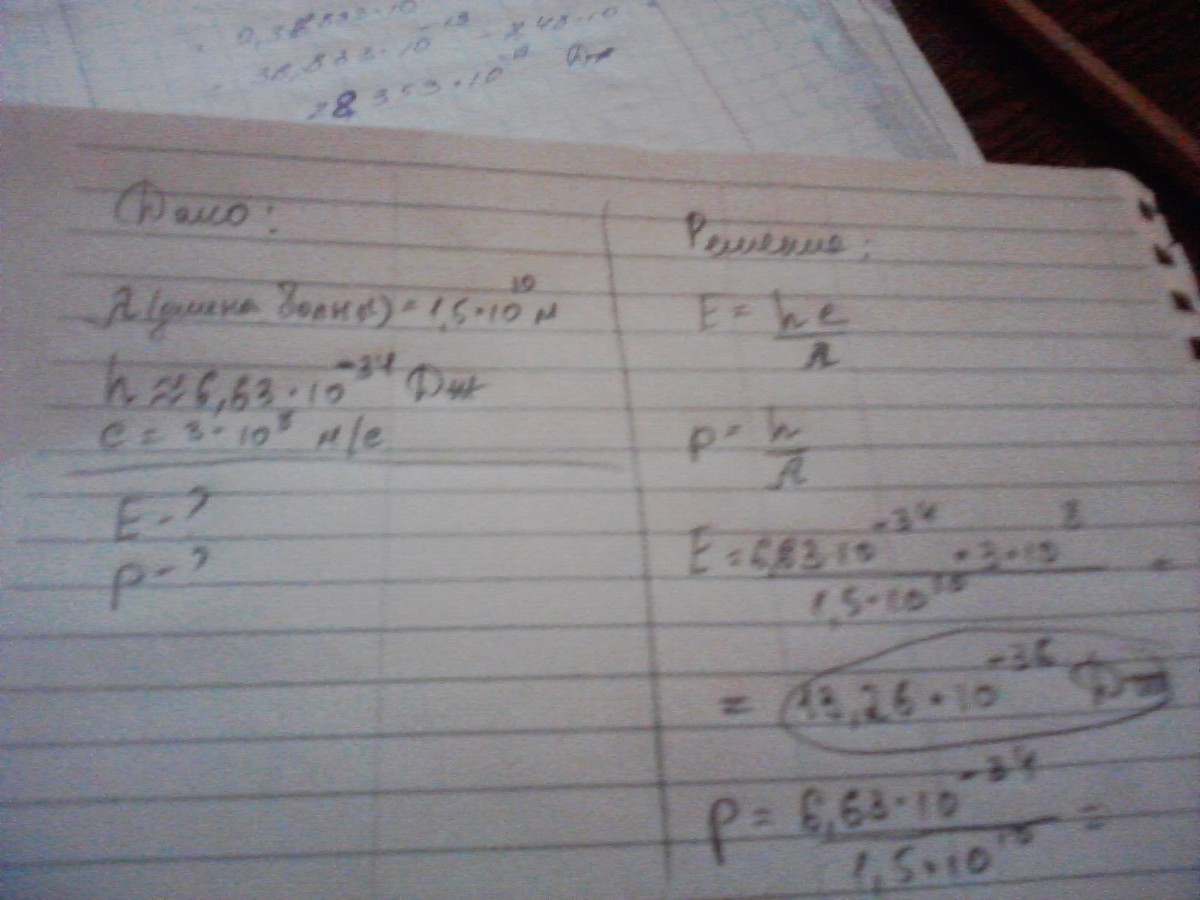 28353·10 Дж
Дано:
λ(длина волны) = 1,5·10¹⁰ м
h ≈ 6,63·10⁻³⁴ Дж
c = 3·10⁸ м/с
E - ?
p - ?
Решение:
E = hc
λ
p = h
λ
E = 6,63·10⁻³⁴ · 3·10⁸ =
1,5·10¹⁰
= 13,26·10⁻³⁶ Дж
p = 6,63·10⁻³⁴ =
1,5·10¹⁰